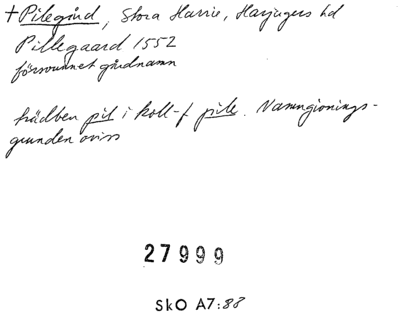 +Pilegård, Stora Harrie, Harjagers hd
Pillegaard 1552
försvunnet gårdnamn
trädben pil i koll-f pile. Namngivnings-
grunden oviss
27999
SkO A7:88